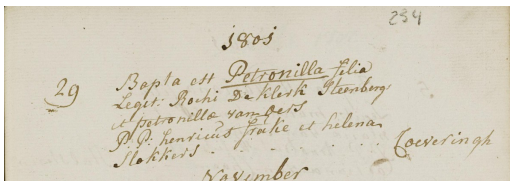 234
1801
29 Bapta est Petronilla filia
Legit: Rochi De Klerk Steenberg
et petronillæ van Oers
P.P: henricus frake et helena
Slokkers Coeveringh
November